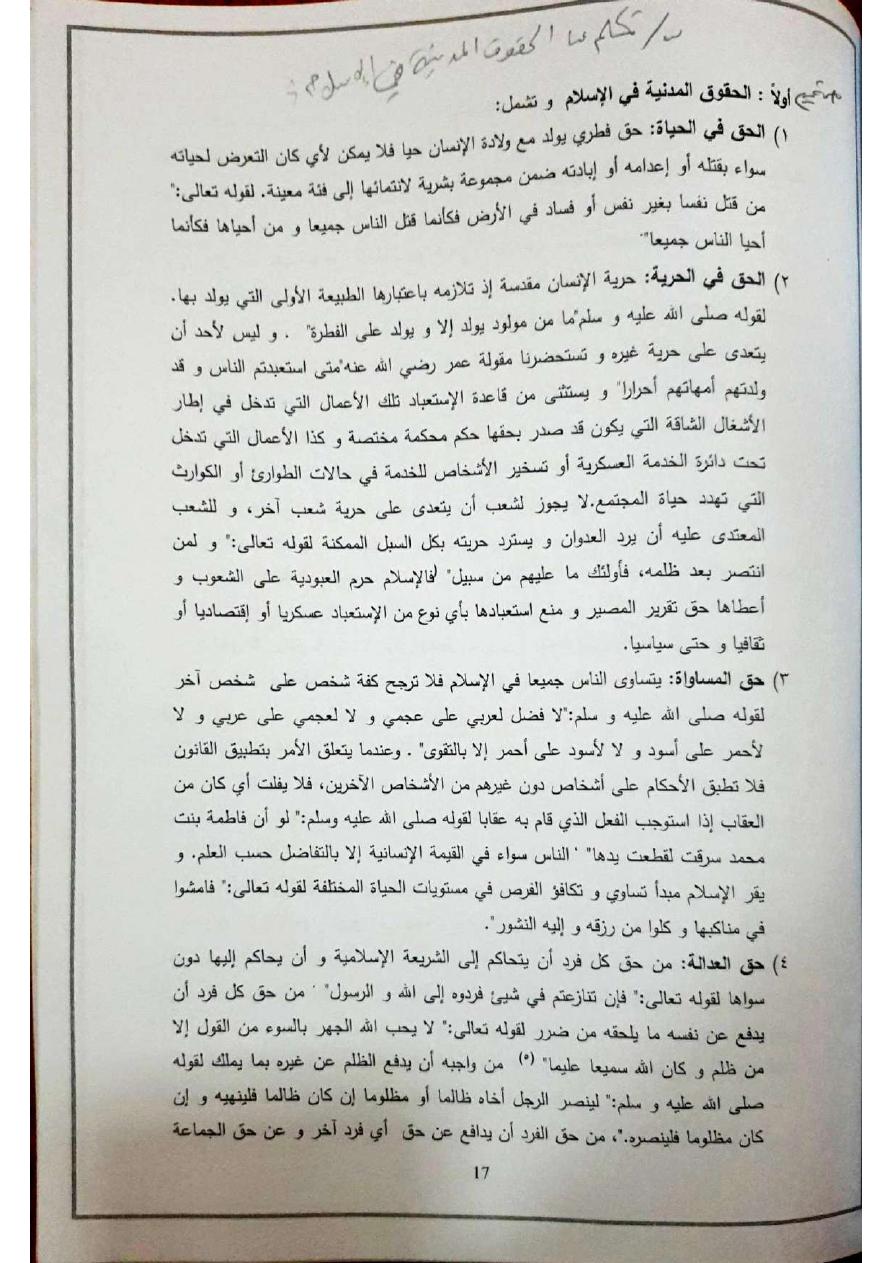 س/ تكلم عن الحقوق المدنية في الاسلام ؟
أولاً : الحقوق المدنية في الإسلام و تشمل:
١) الحق في الحياة: حق فطري يولد مع ولادة الإنسان حيا فلا يمكن لأي كان التعرض لحياته
سواء بقتله أو إعدامه أو إبادته ضمن مجموعة بشرية لانتمائها إلى فئة معينة. لقوله تعالى:"
من قتل نفسا بغير نفس أو فساد في الأرض فكأنما قتل الناس جميعا و من أحياها فكأنما
أحيا الناس جميعا"
٢) الحق في الحرية: حرية الإنسان مقدسة إذ تلازمه باعتبارها الطبيعة الأولى التي يولد بها.
لقوله صلى الله عليه و سلم"ما من مولود يولد إلا و يولد على الفطرة" . و ليس لأحد أن
يتعدى على حرية غيره و تستحضرنا مقولة عمر رضي الله عنه"متى استعبدتم الناس و قد
ولدتهم أمهاتهم أحرارا" و يستثنى من قاعدة الإستعباد تلك الأعمال التي تدخل في إطار
الأشغال الشاقة التي يكون قد صدر بحقها حكم محكمة مختصة و كذا الأعمال التي تدخل
تحت دائرة الخدمة العسكرية أو تسخير الأشخاص للخدمة في حالات الطوارئ أو الكوارث
التي تهدد حياة المجتمع.لا يجوز لشعب أن يتعدى على حرية شعب آخر، و للشعب
المعتدى عليه أن يرد العدوان و يسترد حريته بكل السبل الممكنة لقوله تعالى:" و لمن
انتصر بعد ظلمه، فأولئك ما عليهم من سبيل" فالإسلام حرم العبودية على الشعوب و
أعطاها حق تقرير المصير و منع استعبادها بأي نوع من الإستعباد عسكريا أو إقتصاديا أو
ثقافيا و حتى سياسيا.
٣) حق المساواة: يتساوى الناس جميعا في الإسلام فلا ترجح كفة شخص على شخص آخر
لقوله صلى الله عليه و سلم:"لا فضل لعربي على عجمي و لا لعجمي على عربي و لا
لأحمر على أسود و لا لأسود على أحمر إلا بالتقوى" . وعندما يتعلق الأمر بتطبيق القانون
فلا تطبق الأحكام على أشخاص دون غيرهم من الأشخاص الآخرين، فلا يفلت أي كان من
العقاب إذا استوجب الفعل الذي قام به عقابا لقوله صلى الله عليه وسلم:" لو أن فاطمة بنت
محمد سرقت لقطعت يدها" ' الناس سواء في القيمة الإنسانية إلا بالتفاضل حسب العلم. و
يقر الإسلام مبدأ تساوي و تكافؤ الفرص في مستويات الحياة المختلفة لقوله تعالى:" فامشوا
في مناكبها و كلوا من رزقه و إليه النشور".
٤) حق العدالة: من حق كل فرد أن يتحاكم إلى الشريعة الإسلامية و أن يحاكم إليها دون
سواها لقوله تعالى:" فإن تنازعتم في شيئ فردوه إلى الله و الرسول" ' من حق كل فرد أن
يدفع عن نفسه ما يلحقه من ضرر لقوله تعالى:" لا يحب الله الجهر بالسوء من القول إلا
من ظلم و كان الله سميعا عليما" (٥) من واجبه أن يدفع الظلم عن غيره بما يملك لقوله
صلى الله عليه و سلم:" لينصر الرجل أخاه ظالما أو مظلوما إن كان ظالما فلينهيه و إن
كان مظلوما فلينصره."، من حق الفرد أن يدافع عن حق أي فرد آخر و عن حق الجماعة
17